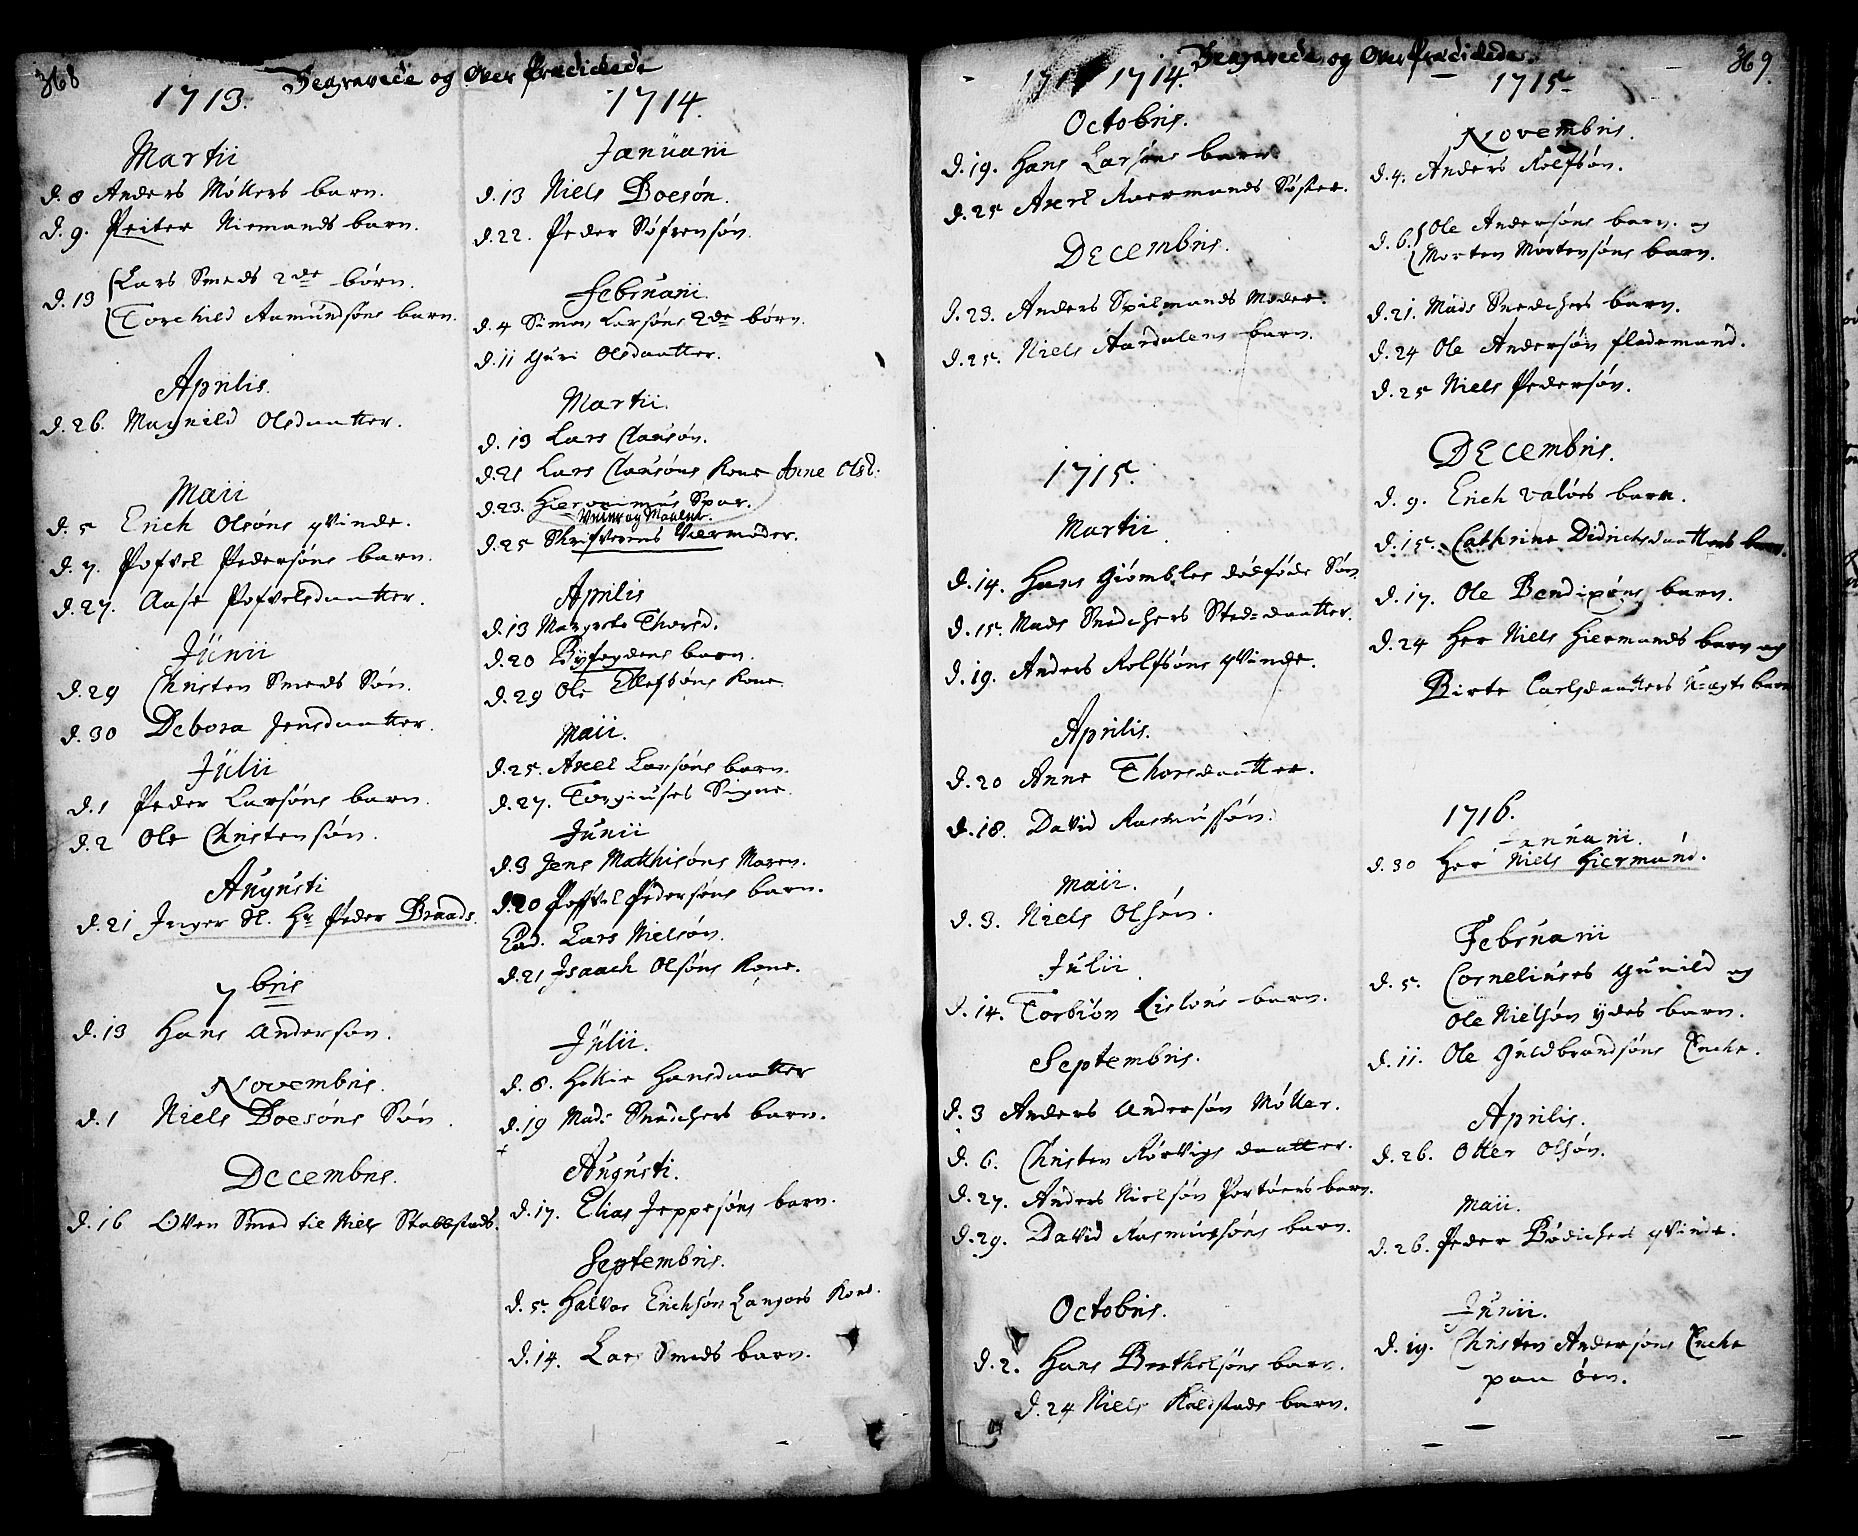 368
Begravede og Over Prædickede
1713.
Martii
d. 8 Anders Møllers barn.
d. 9. Peiter Niemands barn.
d. 13 Lars Smeds 2de børn.
Torchild Aamundsøns barn.
Aprilis.
d. 26. Magnild Olsdaatter.
Maii
d. 5 Erich Olsøns qvinde.
d. 7. Pofvel Pedersøns barn.
d. 27. Aase Pofvelsdaatter.
Junii
d. 29 Christen Smeds Søn.
d. 30 Debora Jensdaatter.
Julii
d. 1 Peder Larsøns barn.
d. 2 Ole Christensøn.
Augusti
d. 21 Inger Sl. Hr Peder Braads.
7bris
d. 13 Hans Andersøn.
Novembris.
d. 1 Niels Boesøns Søn.
Decembris.
d. 16 Oven Smed til Niels Stabbestads.
1714.
Januarii
d. 13 Niels Boesøn.
d. 22. Peder Søfrensøn.
Februarii.
d. 4 Simon Larsøns 2de børn.
d. 11 Guri Olsdaatter.
Martii.
d. 13 Lars Clausøn.
d. 21 Lars Clausøns Kone Anne Olsd.
d. 23. Hieronimus Spar.
Veier og Maaler.
d. 25 Skrifverens Værmoder.
Aprilis
d. 13 Margrete Thorsd.
d. 20 Byfogdens barn.
d. 29 Ole Ellefsøns Kone
Maii.
d. 25. Axel Larsøns barn.
d. 27. Torgiuses Signe.
Junii
d. 3 Jens Mathisøns Maren.
d. 20 Poffvel Pedersøns barn.
Eod. Lars Nielsøn.
d. 21 Isaach Olsøns Kone.
Julii.
d. 8. Hellie Hansdaatter
d. 19 Mads Snedchers barn.
Augusti.
d. 17. Elias Jeppesøns barn.
Septembris.
d. 5. Halvor Erichsøn Langøes Kone.
d. 14. Lars Smeds barn.
Begravede og Over Prædickede.
369.
1714.
Octobris.
d. 19. Hans Larsøns barn
d. 25 Axel Roermands Søster.
Decembris.
d. 23. Anders Spilmands Moder.
d. 25. Niels Aardalens barn.
1715.
Martii
d. 14. Hans Giømbles dødføde Søn
d. 15. Mads Snedchers Sted=daatter.
d. 19. Anders Rolfsøns qvinde.
Aprilis.
d. 20 Anne Thorsdaatter.
d. 18. David Rasmussøn.
Maii.
d. 3. Niels Olsøn.
Julii
d. 14. Torbiøn barn.
Septembris.
d. 3 Anders Andersøn Møller.
d. 6. Christen Rørvigs daatter.
d. 27. Anders Nielsøn Portøers barn.
d. 29. David Rasmussøns barn.
Octobris.
d. 2. Hans Berthelsøns barn.
d. 24 Niels Kalstads barn.
1715
Novembris.
d. 4. Anders Rolfsøn.
d. 6. Ole Andersøns barn. og
Morten Mortensøns barn.
d. 21. Mads Snedchers barn.
d. 24 Ole Andersøn flademand.
d. 25 Niels Pedersøn.
Decembris.
d. 9. Erich Valøes barn.
d. 15. Cathrine Didrichsdaatters barn.
d. 17. Ole Bendixøns barn.
d. 24 Her Niels Hiermands barn og
Birte Carlsdaatters Uægte barn
1716.
Januarii.
d. 30 Her Niels Hiermand.
Februarii
d. 5. Corneliuses Gunild og
Ole Nielsøn ydes barn.
d. 11. Ole Guldbrandsøns Enche.
Aprilis.
d. 26. Otter Olsøn.
Maii.
d. 26. Peder Bødichers qvinde.
Junii.
d. 19. Christen Andersøns Enche
paa Øen.